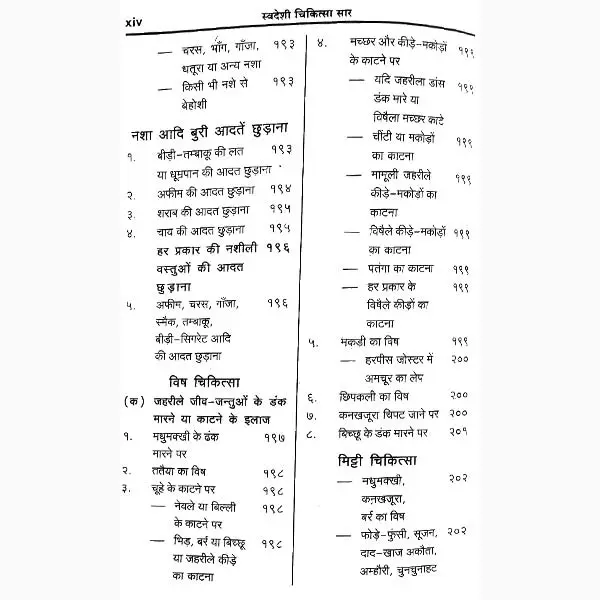 xiv
स्वदेशी चिकित्सा सार
— चरस, भाँग, गाँजा, १९३
धतूरा या अन्य नशा
— किसी भी नशे से १९३
बेहोशी
नशा आदि बुरी आदतें छुड़ाना
१. बीड़ी-तम्बाकू की लत १९३
या धूम्रपान की आदत छुड़ाना
२. अफीम की आदत छुड़ाना १९४
३. शराब की आदत छुड़ाना १९५
४. चाय की आदत छुड़ाना १९५
हर प्रकार की नशीली १९६
वस्तुओं की आदत
छुड़ाना
५. अफीम, चरस, गाँजा, १९६
स्मैक, तम्बाकू,
बीड़ी-सिगरेट आदि
की आदत छुड़ाना
विष चिकित्सा
(क) जहरीले जीव-जन्तुओं के डंक
मारने या काटने के इलाज
१. मधुमक्खी के डंक १९७
मारने पर
२. ततैया का विष १९८
३. चूहे के काटने पर १९८
— नेवले या बिल्ली १९८
के काटने पर
— भिड़, बर्र या बिच्छू १९८
या जहरीले कीड़े
का काटना
४. मच्छर और कीड़े-मकोड़ों १९९
के काटने पर
— यदि जहरीला डांस १९९
डंक मारे या
विषैला मच्छर काटे
— चींटी या मकोड़ों १९९
का काटना
— मामूली जहरीले १९९
कीड़े-मकोडों का
काटना
— विषैले कीड़े-मकोड़ों १९९
का काटना
— पतंगा का काटना १९९
— हर प्रकार के १९९
विषैले कीड़ों का
काटना
५. मकडी का विष १९९
— हरपीस जोस्टर में २००
अमचूर का लेप
६. छिपकली का विष २००
७. कनखजूरा चिपट जाने पर २००
८. बिच्छू के डंक मारने पर २०१
मिट्टी चिकित्सा
— मधुमक्खी, २०२
कनखजूरा,
बर्र का विष
— फोड़े-फुंसी, सूजन, २०२
दाद-खाज अकौता,
अम्हौरी, चुनचुनाहट